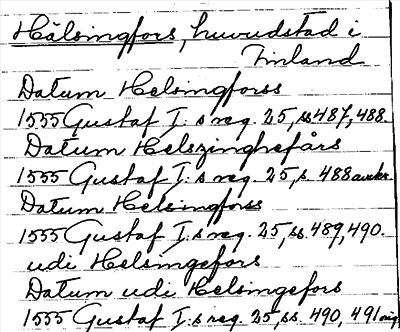 Hälsingfors, huvudstad i
Finland
Datum Helsingforss
1555 Gustaf I:s reg. 25, ss 487, 488.
Datum Helszinghefårs
1555 Gustaf I:s reg. 25, s. 488
Datum Helsingforss
1555 Gustaf I:s reg. 25, ss. 489, 490.
udi Helsingefors
Datum udi Helsingefors
1555 Gustaf I:s reg. 25, ss. 490, 491